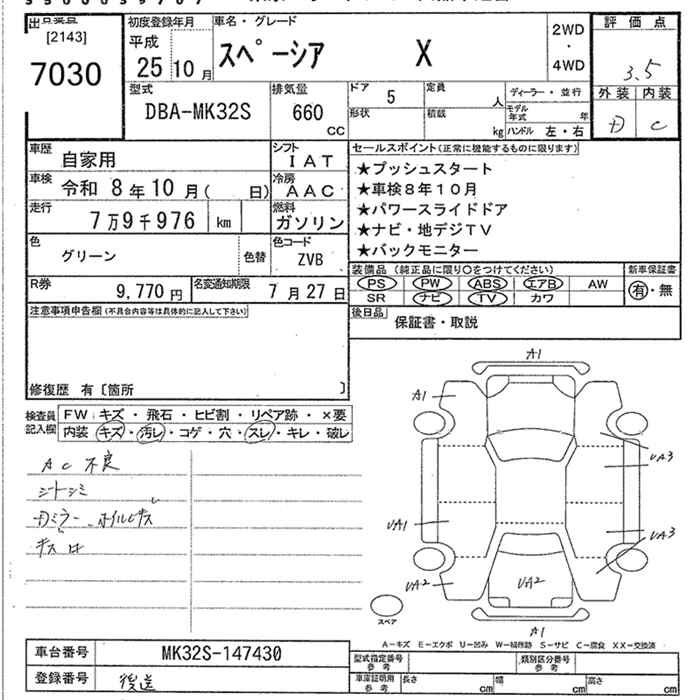 [2143]
7030
初度登録年月 車名・グレード
平成 25 10月 スペーシア X
2WD・4WD
評価点
3.5
外装 内装
D C
型式 排気量 ドア 5 定員 人 ディーラー・並行
DBA-MK32S 660 CC 形状 積載 kg モデル年式 年 ハンドル 左・右
車歴 自家用 シフト IAT
車検 令和 8年10月( 日) 冷房 AAC
走行 7万9千976 km 燃料 ガソリン
色 グリーン 色替 色コード ZVB
R券 9,770円 名変通知期限 7月27日
セールスポイント(正常に機能するものに限ります)
★プッシュスタート
★車検8年10月
★パワースライドドア
★ナビ・地デジTV
★バックモニター
装備品 (純正品に限り○をつけてください) 新車保証書
PS PW ABS エアB AW 有・無
SR ナビ TV カワ
後日品 保証書・取説
注意事項申告欄(不具合内容等は具体的に記入して下さい)
修復歴 有〔箇所 〕
検査員記入欄 FW キズ・飛石・ヒビ割・リペア跡・×要
内装 キズ・汚レ・コゲ・穴・スレ・キレ・破レ
AC 不良
シートシミ
ミラー ホイルキズ
キス
A1
A1
UA3
UA1
UA3
UA2
UA2
A1
スペア
A-キズ E-エクボ U-凹み W-補修跡 S-サビ C-腐食 XX-交換済
車台番号 MK32S-147430
登録番号 後送
型式指定番号 参考 類別区分番号 参考
車庫証明用 参考 長さ cm 幅 cm 高さ cm